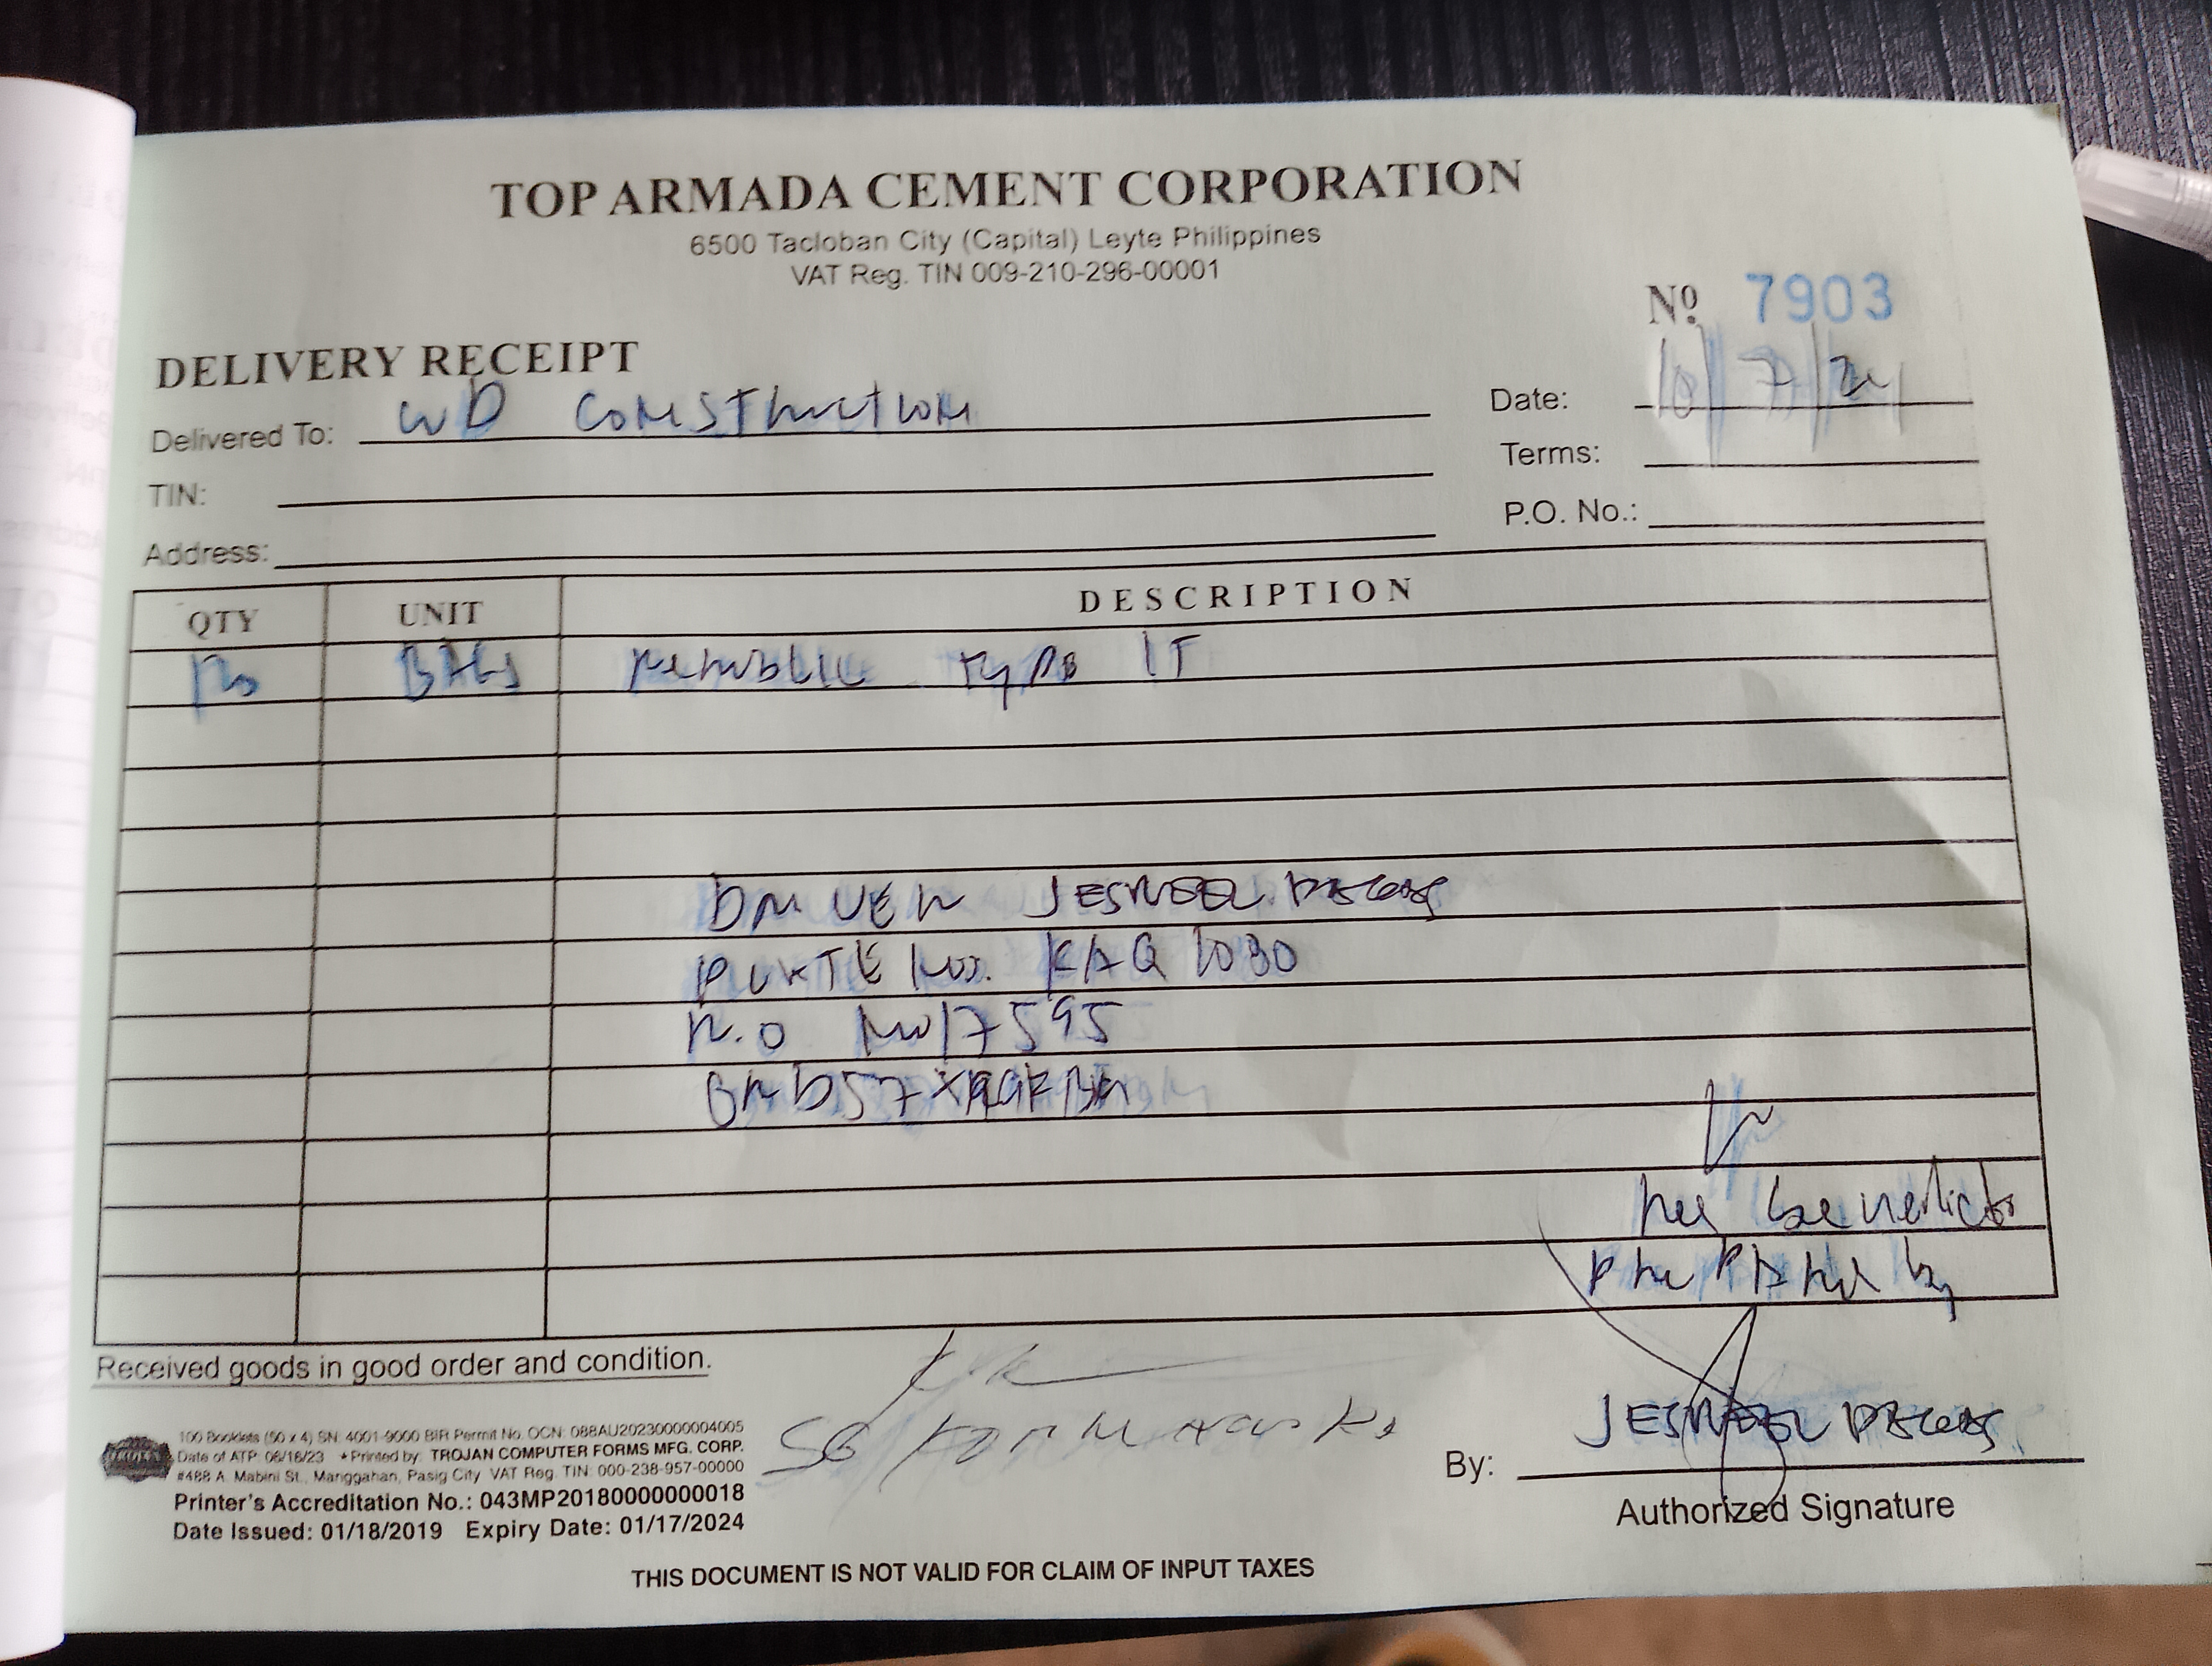 TOP ARMADA CEMENT CORPORATION
6500 Tacloban City (Capital) Leyte Philippines
VAT Reg. TIN 009-210-296-00001
Nº 7903
DELIVERY RECEIPT
Delivered To: WD Construction
Date: 10/7/24
TIN:
Terms:
Address:
P.O. No.:
QTY UNIT DESCRIPTION
BAGS Republic Type 1T
DRIVER JESREEL
PLATE No. KAQ 1030
R.O No 17595
benedicto
Prepared by
Received goods in good order and condition.
100 Booklets (50 x 4) SN: 4001-9000 BIR Permit No. OCN: 088AU20230000004005
Date of ATP: 06/16/23 * Printed by: TROJAN COMPUTER FORMS MFG. CORP.
#488 A. Mabini St., Manggahan, Pasig City VAT Reg. TIN: 000-238-957-00000
Printer's Accreditation No.: 043MP20180000000018
Date Issued: 01/18/2019 Expiry Date: 01/17/2024
SG
By: JESREEL
Authorized Signature
THIS DOCUMENT IS NOT VALID FOR CLAIM OF INPUT TAXES